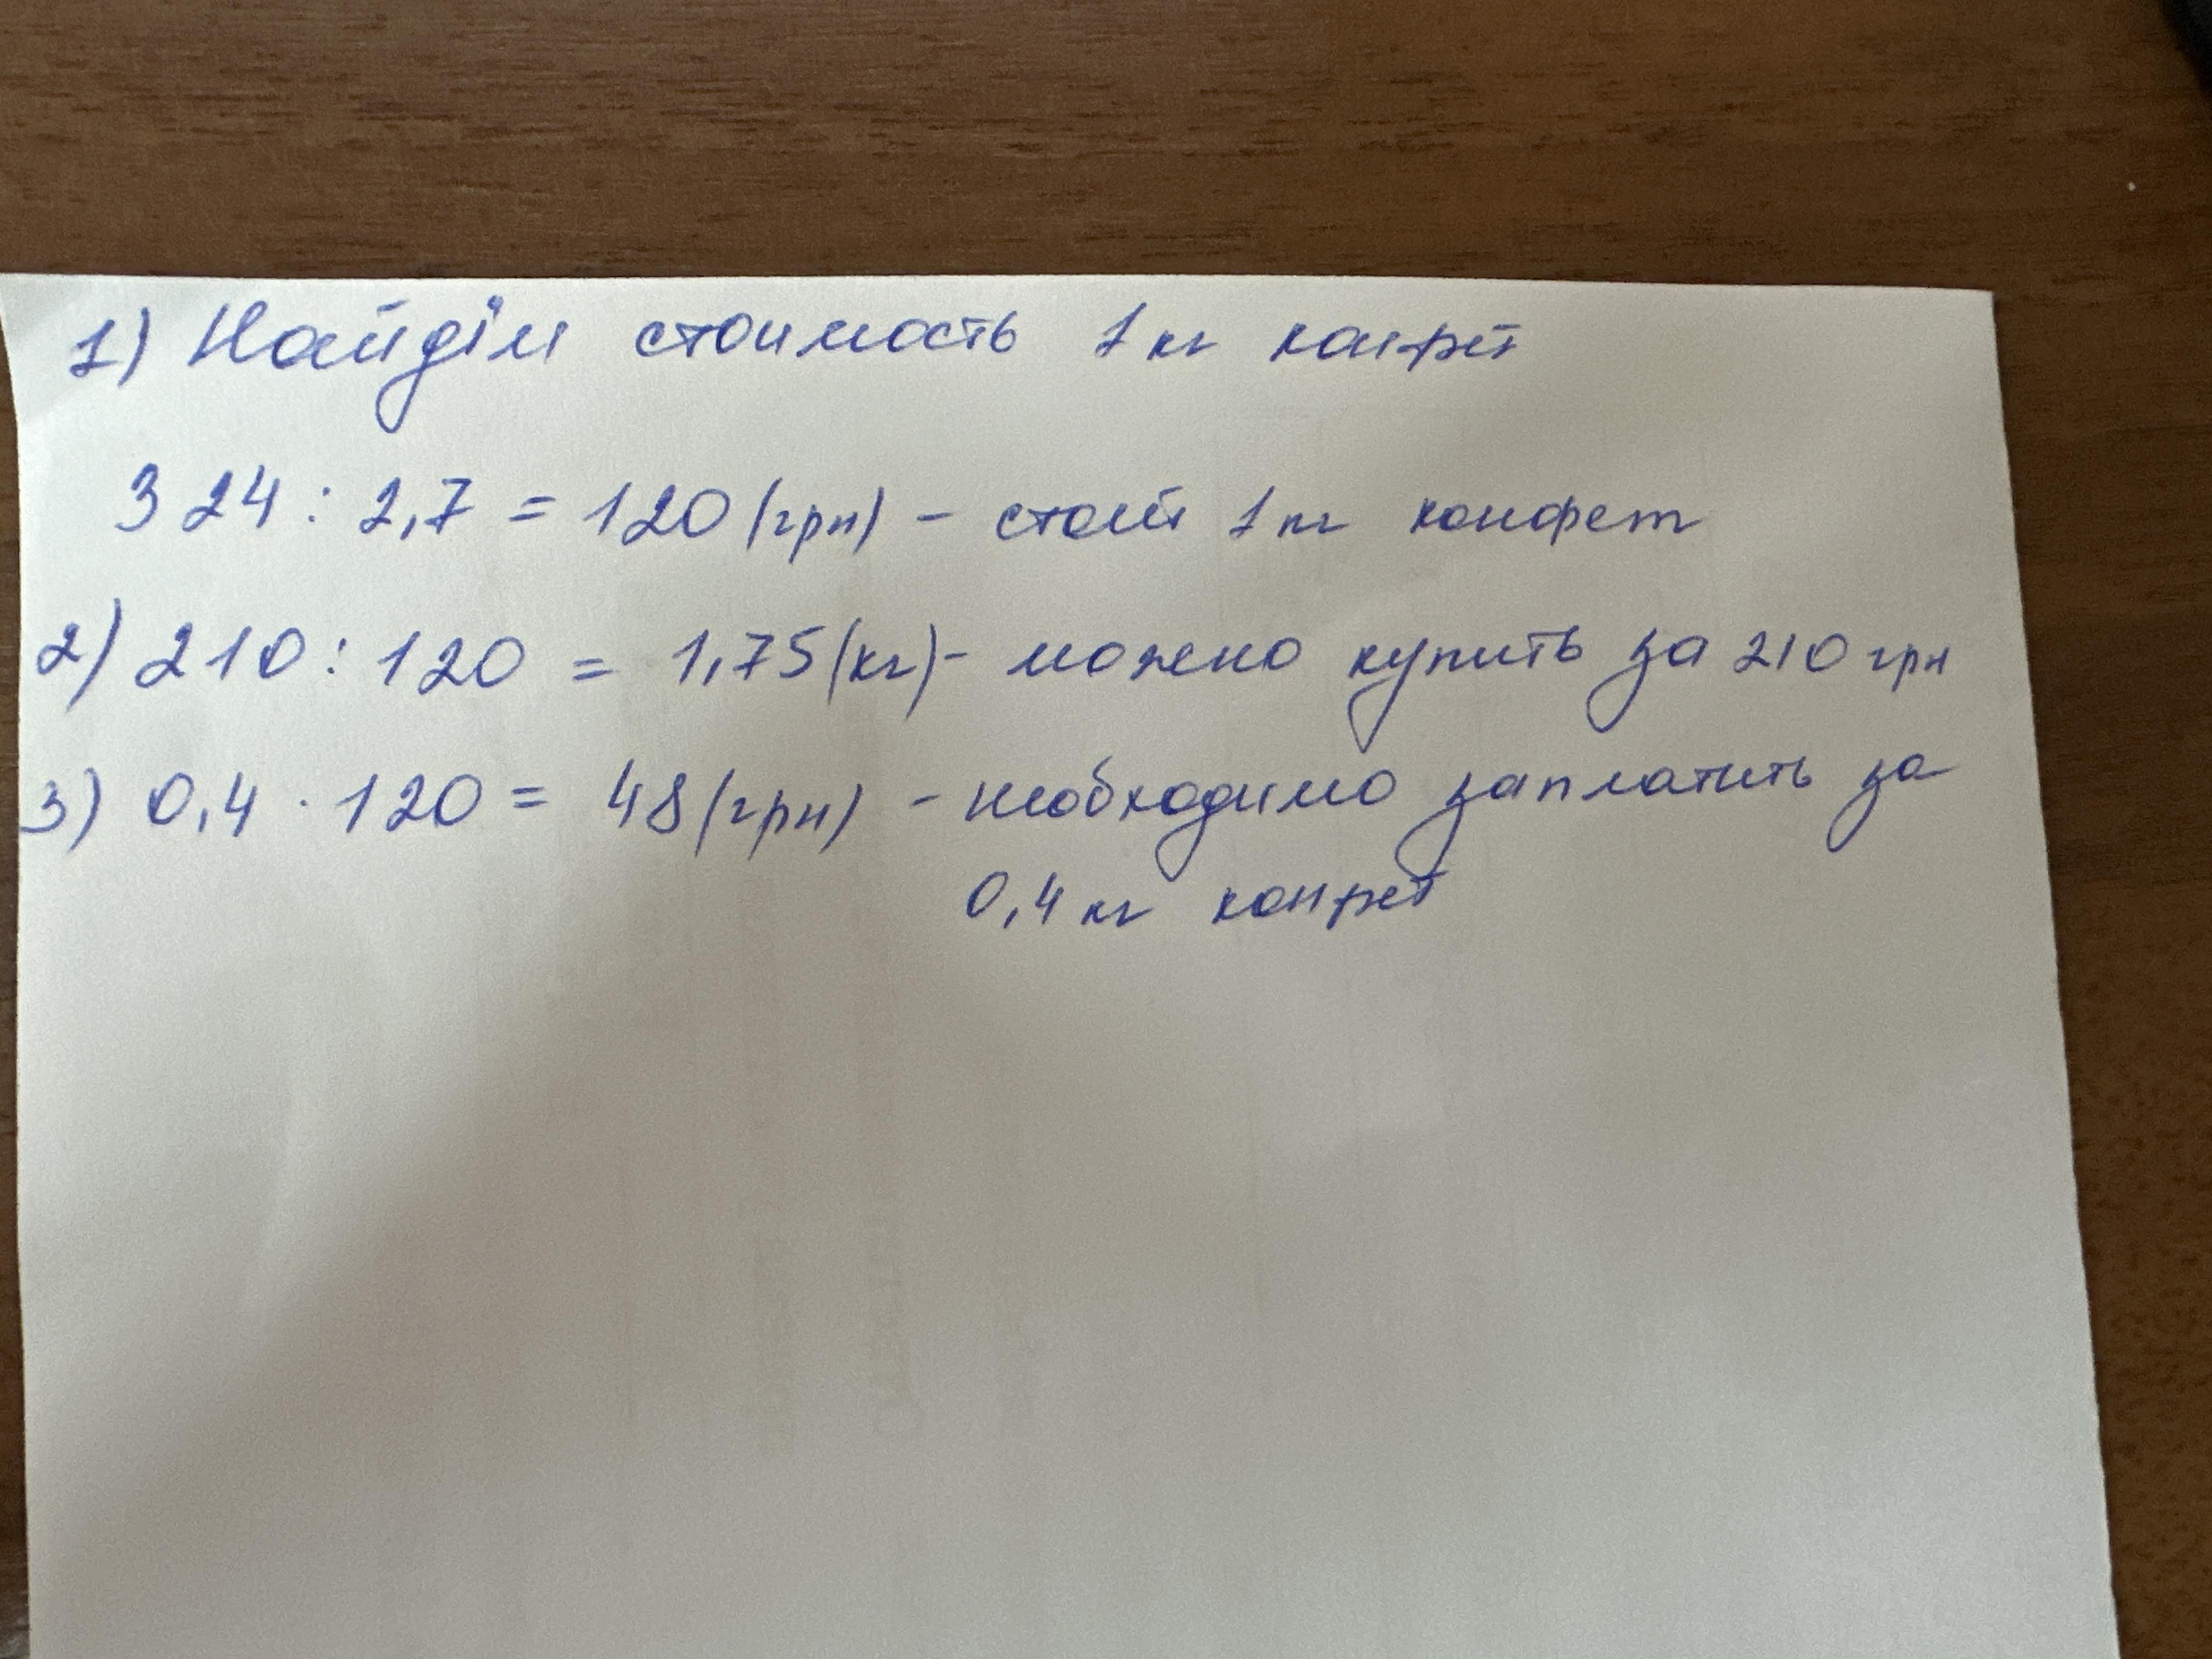 1) Найдём стоимость 1 кг конфет
324 : 2,7 = 120 (грн) - стоит 1 кг конфет
2) 210 : 120 = 1,75 (кг) - можно купить за 210 грн
3) 0,4 · 120 = 48 (грн) - необходимо заплатить за
0,4 кг конфет